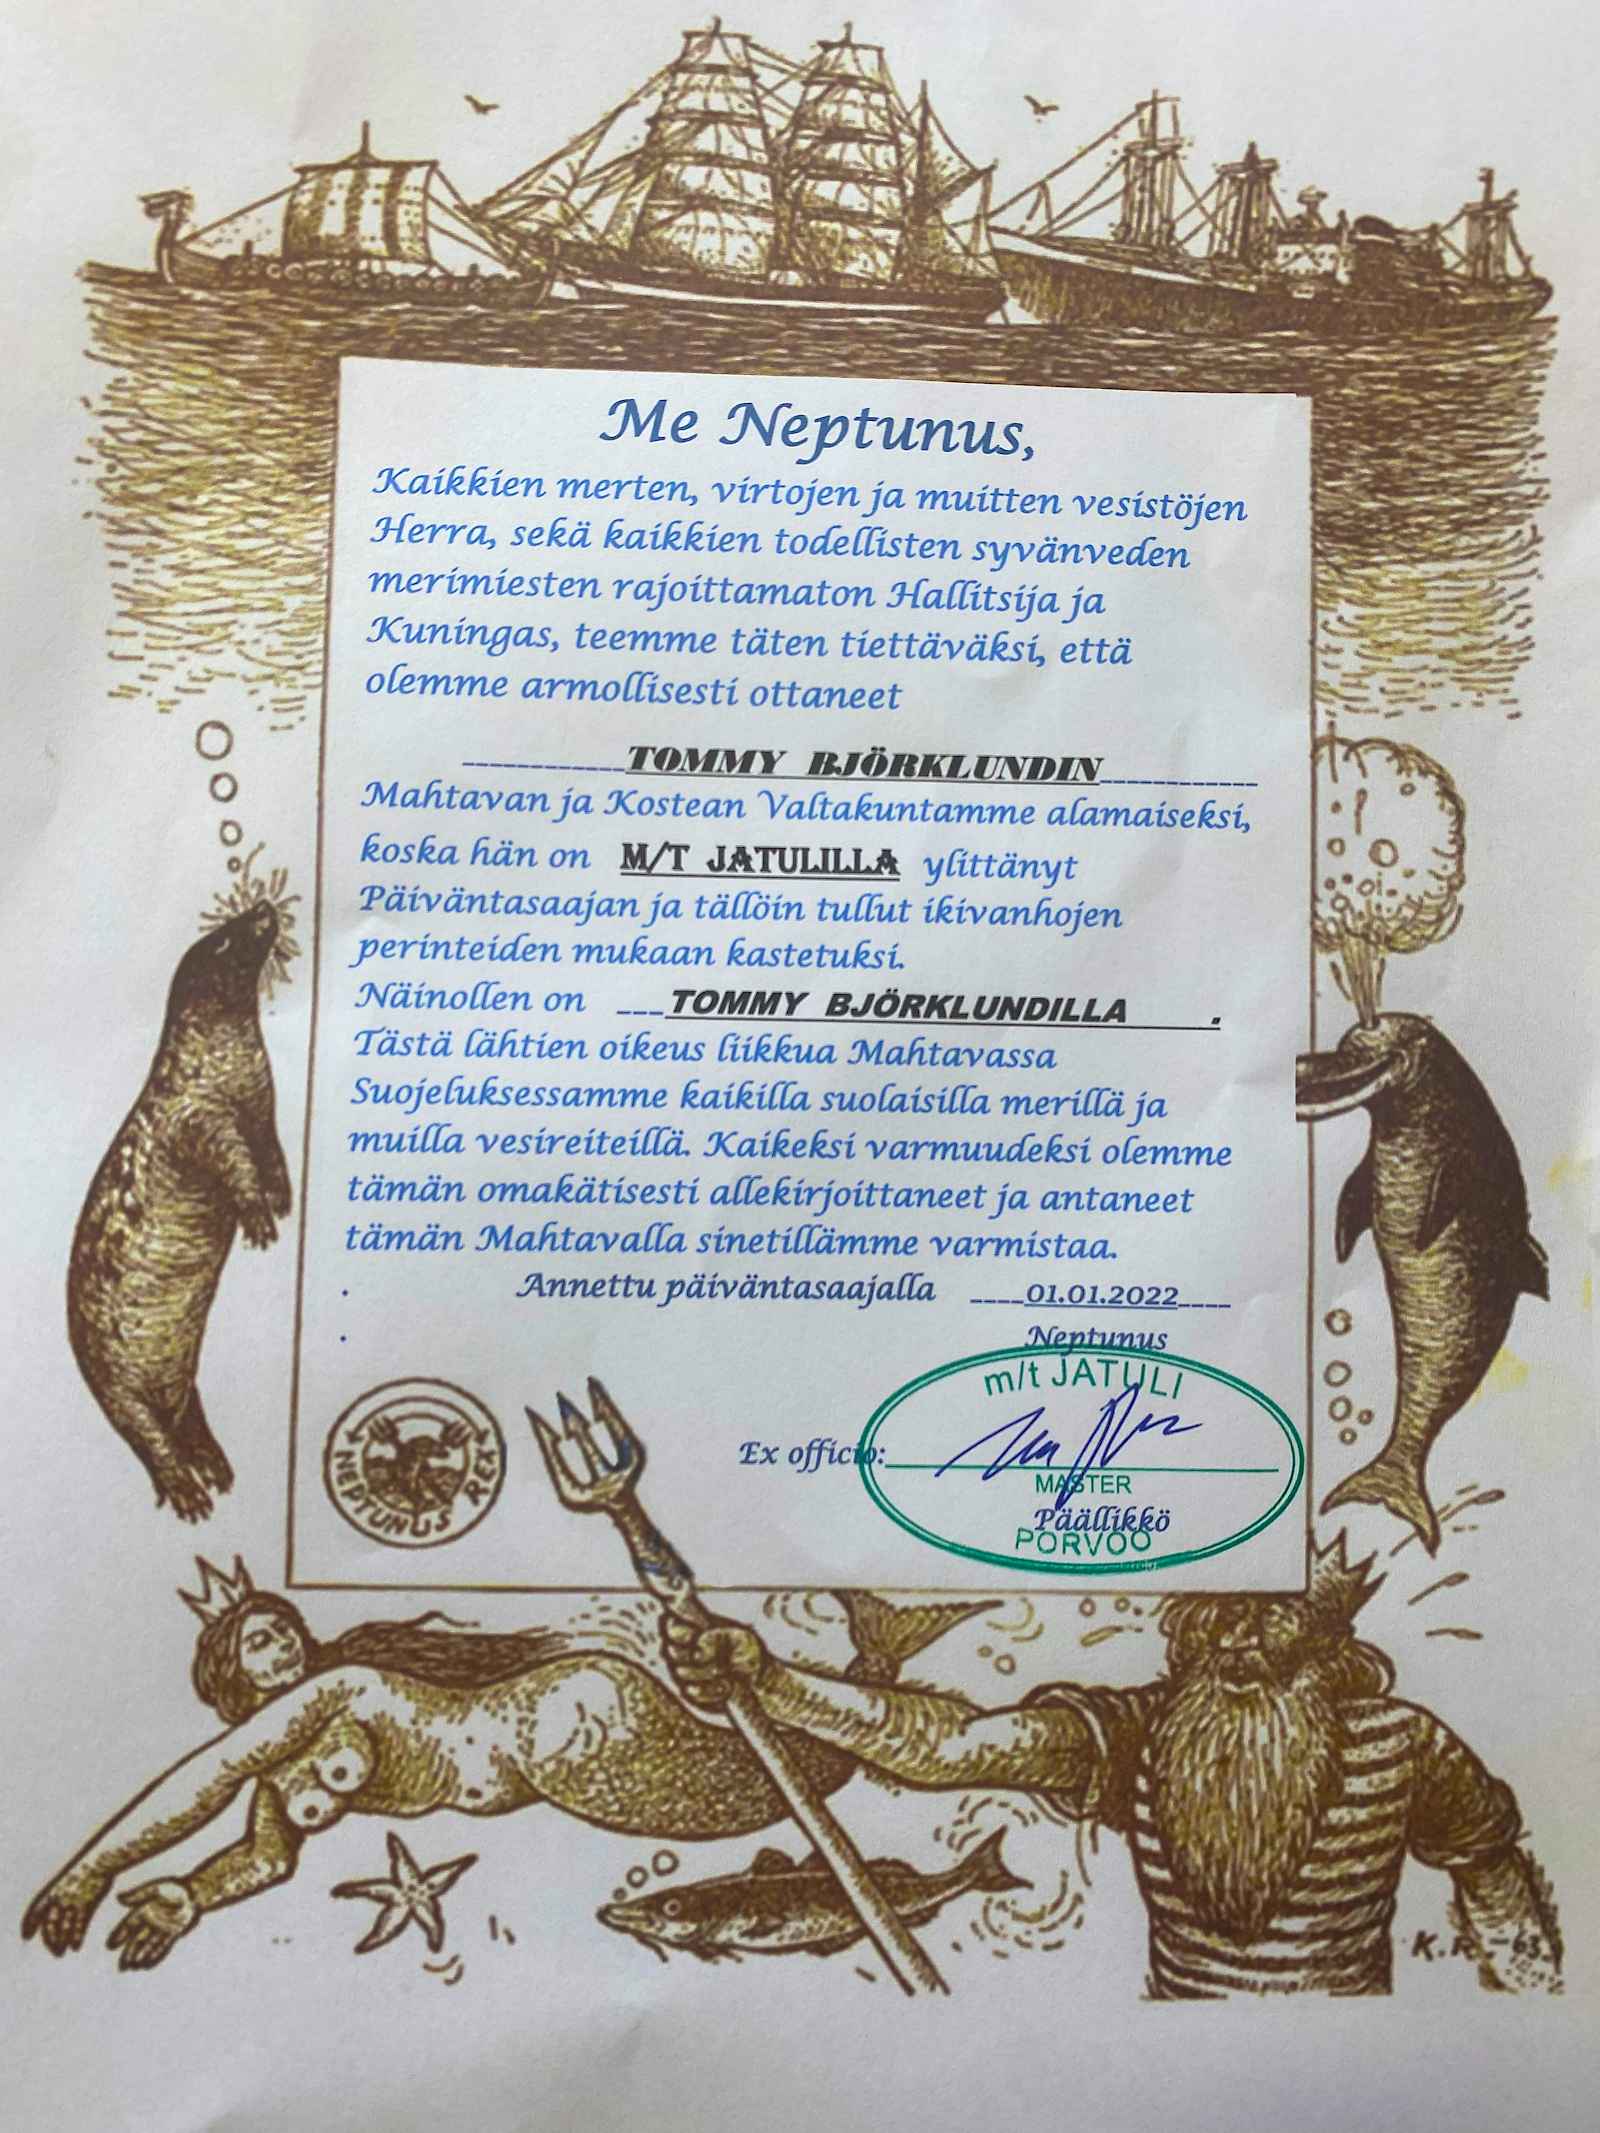 Me Neptunus,
Kaikkien merten, virtojen ja muitten vesistöjen
Herra, sekä kaikkien todellisten syvänveden
merimiesten rajoittamaton Hallitsija ja
Kuningas, teemme täten tiettäväksi, että
olemme armollisesti ottaneet
____________TOMMY BJÖRKLUNDIN____________
Mahtavan ja Kostean Valtakuntamme alamaiseksi,
koska hän on M/T JATULILLA ylittänyt
Päiväntasaajan ja tällöin tullut ikivanhojen
perinteiden mukaan kastetuksi.
Näinollen on ___TOMMY BJÖRKLUNDILLA .
Tästä lähtien oikeus liikkua Mahtavassa
Suojeluksessamme kaikilla suolaisilla merillä ja
muilla vesireiteillä. Kaikeksi varmuudeksi olemme
tämän omakätisesti allekirjoittaneet ja antaneet
tämän Mahtavalla sinetillämme varmistaa.
. Annettu päiväntasaajalla ____01.01.2022____
. Neptunus
m/t JATULI
Ex officio:
MASTER
Päällikkö
PORVOO
NEPTUNUS REX
K.R. -63